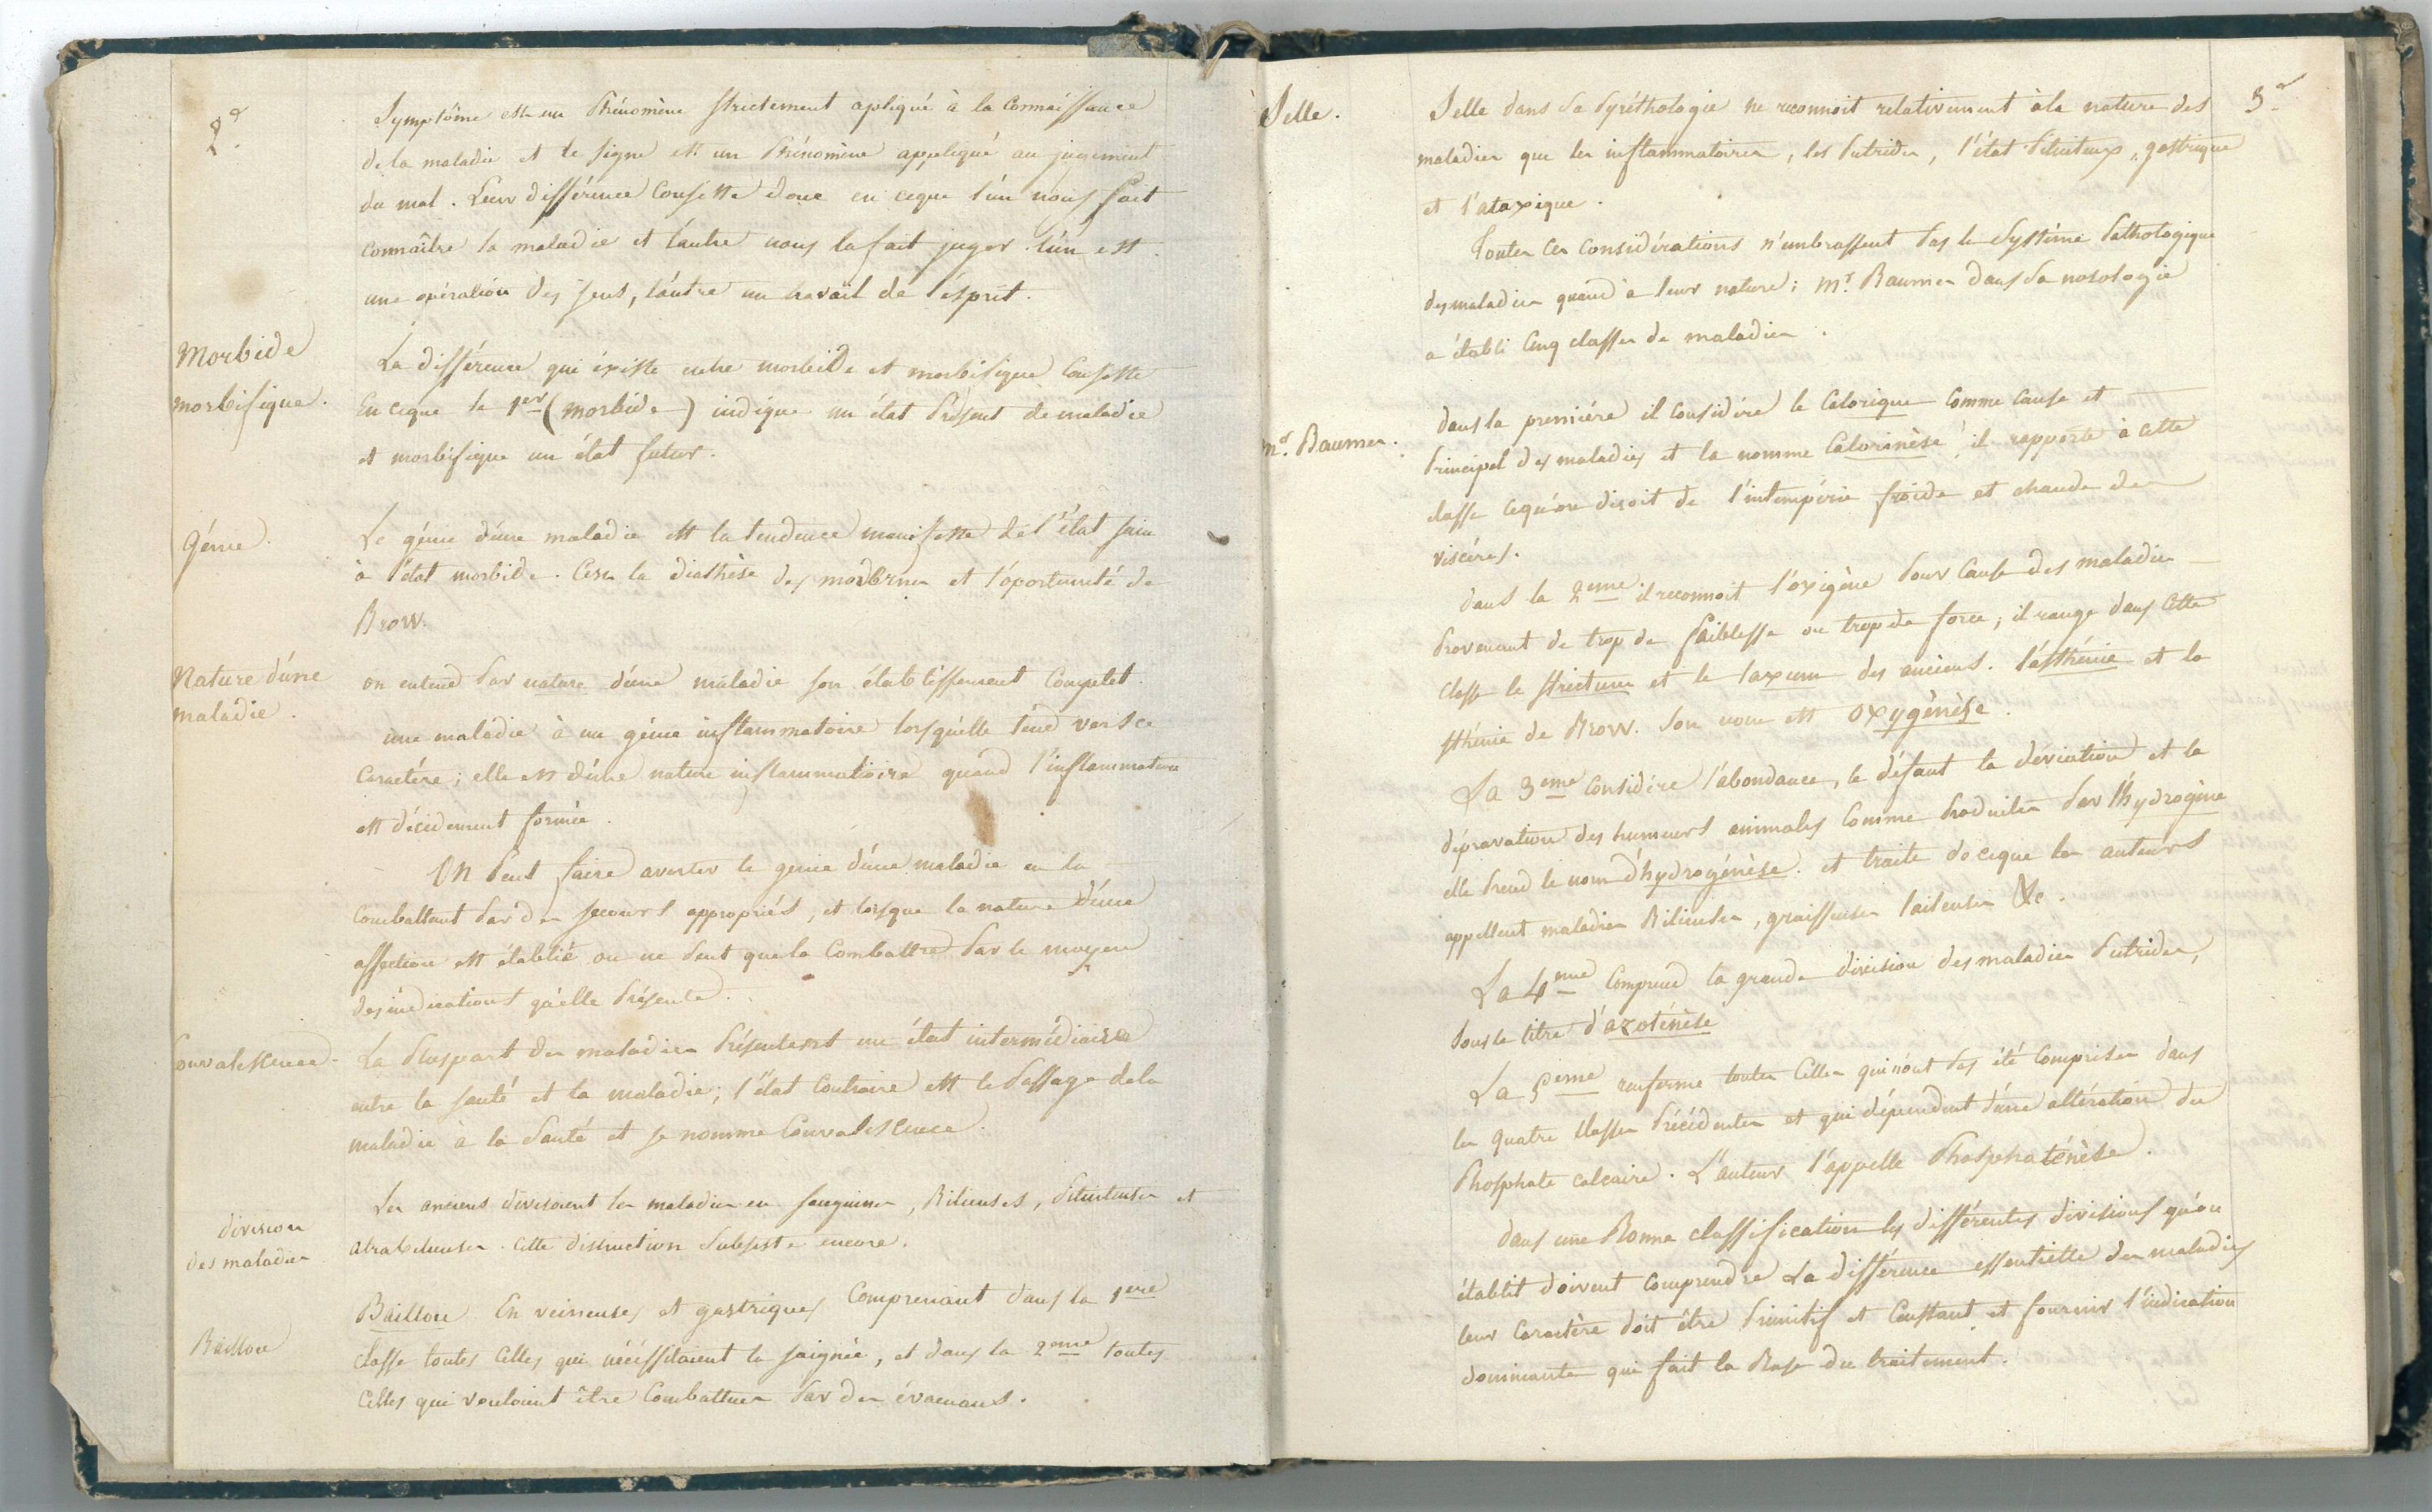 2.d
Symptôme est un Phénomène strictement apliqué à la Connaissance
de la maladie et le signe est un Phénomène appliqué au jugement
du mal. Leur différence Consiste donc en ceque l'un nous fait
Connaître la maladie et l'autre nous la fait juger. l'un est
une opération des sens, l'autre un travail de l'ésprit.
Morbide
morbifique.
La différence qui éxiste entre morbide et morbifique Consiste
En ceque le 1er (morbide) indique un état Présent de maladie
et morbifique un état futur.
Génie.
Le génie d'une maladie est la tendence manifeste de l'état sain
à l'état morbide. C'est la diathèse des modernes et l'óportunité de
Brow.
Nature d'une
maladie.
on entend Par nature d'une maladie son établissement Complet.
une maladie à un génie inflammatoire lorsqu'elle tend vers ce
Caractére; elle est d'une nature inflammatioire quand l'inflammation
est décidement formée.
On Peut faire avorter le genie d'une maladie en la
Combattant Par des secours appropriés, et lorsque la nature d'une
affection est établie on ne Peut que la Combattre Par le moyen
des indications qu'elle Présente.
Convalescence.
La Pluspart des maladies Présentent un état intermédiaire
entre la santé et la maladie; l'état Contraire est le Passage dela
maladie à la Santé et se nomme Convalescence.
division
des maladies
Les anciens divisoient les maladies en sanguines, Bilieuses, Pituiteuses et
atrabilieuses. Cette distinction Subsiste encore.
Baillou
Baillou En veineuses et gastriques Comprenant dans la 1ere
Classe toutes Celles qui nécéssitaient la saignée, et dans la 2eme toutes
Celles qui vouloient être Combattues Par des évacuans.
Selle.
3.e
Selle dans Sa Pyréthologie ne reconnoit relativement àla nature des
maladies que les inflammatoires, les Putrides, l'état Pituiteux, gastrique
et l'ataxique.
Toutes Ces Considérations n'embrassent Pas le Systéme Pathologique
des maladies quand à leur nature; Mr. Baumes dans Sa nosologie
a établi Cinq classes de maladies.
mr. Baumes.
dans la premiére il Considére le Calorique Comme Cause et
Principal des maladies et la nomme Calorinèse, il rapporte à Cette
classe cequ'on disoit de l'intempérie froide et chaude des
viscéres.
dans la 2eme il reconnoit l'oxigène Pour Cause des maladies
Provenant de trop de faiblesse ou trop de force; il range dans Cette
Classe le strictum et le laxum des anciens. l'asthénie et la
sthénie de Brow. Son nom est oxygénèse.
La 3eme Considére l'abondance, le défaut la déviation et la
dépravation des humeurs animales Comme Produites Par l'hydrogène
elle Prend le nom d'hydrogénèse. et traite de ceque les auteurs
appellent maladies Bilieuses, graisseuses laiteuses &c.
La 4eme Comprend la grande division des maladies Putrides,
Sous le titre d'azoténèse
La 5eme renferme toutes Celles qui n'ont Pas été Comprises dans
les quatre Classes Précédentes et qui dépendent d'une altération du
Phosphate calcaire. L'auteur l'appelle Phosphoténèse.
dans une Bonne classification les différentes divisions qu'on
établit doivent Comprendre La différence essentielle des maladies
leur Caractère doit être Primitif et Constant et fournir l'indication
dominante qui fait la Base du traitement.